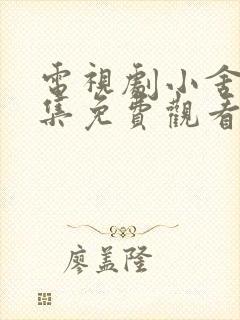 電視劇小舍
集免費觀看
廖盖隆